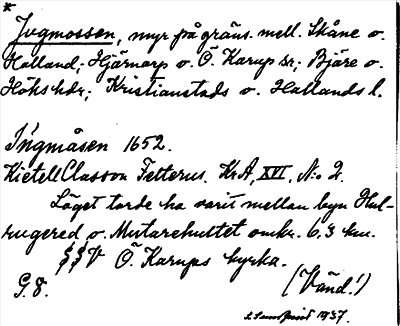 *
Jugmossen, myr på gräns mell. Skåne o.
Halland; Hjärnarp o. Ö. Karup sr; Bjäre o.
Höks hdr; Kristianstads o. Hallands l.
Ingmåsen 1652.
Kietell Classon Felterus. KrA, XVI, No 2.
Läget torde ha varit mellan byn Hul-
rugered o. Mutarehultet omkr. 6.3 km.
SSV Ö. Karups kyrka.
G. 8.
(Vänd!)
1937.